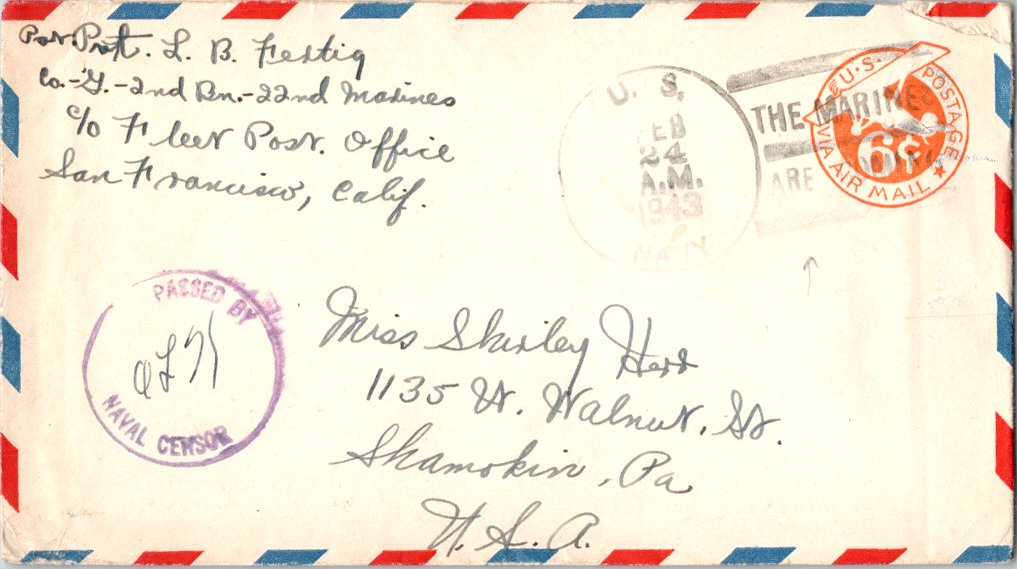 Pvt. L. B. Fertig
Co.-G.-2nd Bn.-22nd Marines
c/o Fleet Post. Office
San Francisco, Calif.
U. S.
FEB
24
A.M.
1943
NAVY
THE MARINES
ARE
U.S. POSTAGE
6¢
VIA AIR MAIL
PASSED BY
NAVAL CENSOR
Miss Shirley Herr
1135 W. Walnut. St.
Shamokin, Pa
U. S. A.